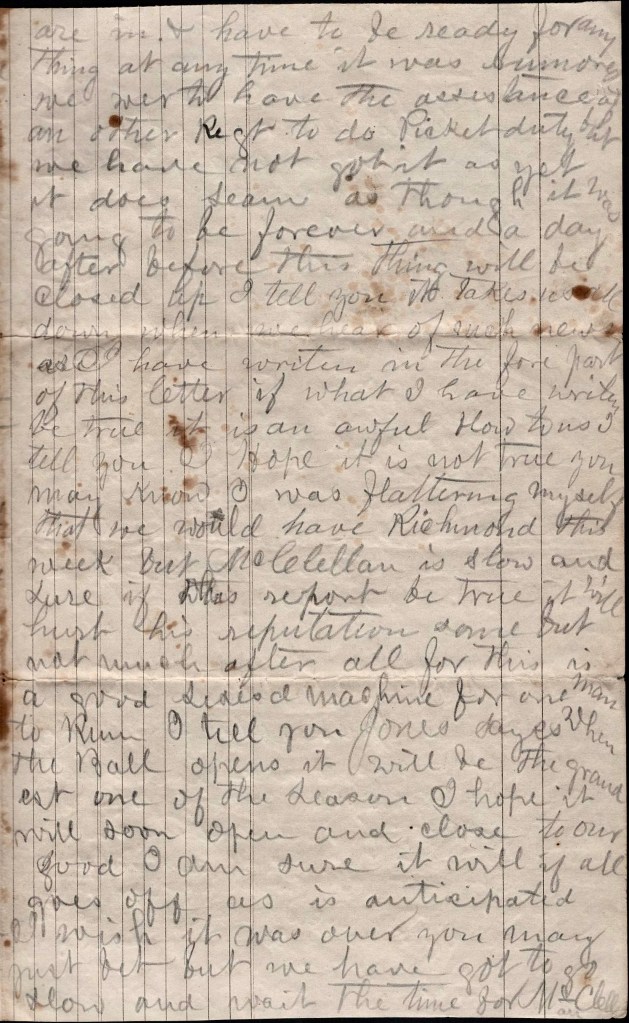 are in & have to be ready for any
thing at any time it was rumored
we wer to have the assistance of
an other Regt to do Picket duty but
we have not got it as yet
it does seam as though it was
going to be forever and a day
after before this thing will be
closed up I tell you it takes us all
down when we hear of such news
as I have writen in the fore part
of this letter if what I have writen
be true it is an awful blow to us I
tell you I Hope it is not true you
may know I was flattering myself
that we would have Richmond this
week but McClellan is slow and
sure if this report be true it will
hurt his reputation some but
not much after all for this is
a good sised machine for one man
to Runn I tell you Jones sayes When
the Ball opens it will be the grand
est one of the season I hope it
will soon open and close to our
good I am sure it will if all
goes off as is anticipated
I wish it was over you may
just bet but we have got to go
slow and wait the time for McClellan